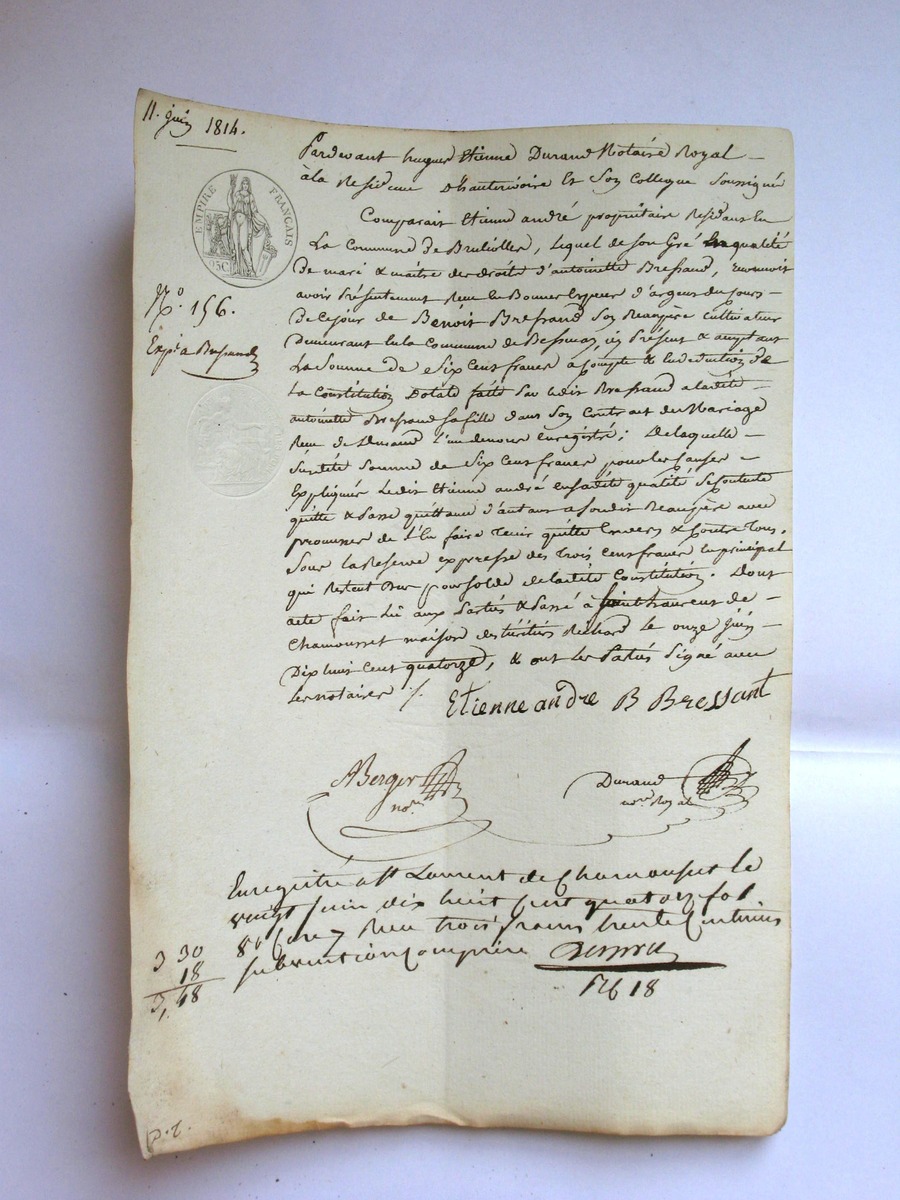 11. juin 1814.
EMPIRE FRANÇAIS
Pardevant hugues Etienne Durand Notaire Royal –
à la Residence d'hauterivoire Et Son Collegue Soussignés
Comparait Etienne andré propriétaire Residant En
La Commune de Bruliolles, lequel de son Gré En qualité
De mari & maître des droits d'antoinette Bressand,
avoir Présentement Reçu En Bonnes Especes d'argent du Cours –
De Ce jour de Benoît Bressand Son Beaupère Cultivateur
Demeurant En la Commune de Bessenay, ici Présent & aceptant
La Somme de Six Cent francs a Compte & En deduction de
La Constitution Dotale faite Par ledit Bressand a ladite –
antoinette Bressand Sa fille dans Son Contrat de Mariage
Reçu de Durand L'un de nous Enregistré; De laquelle –
Susdite Somme de Six Cent francs pour les Causes –
Expliquées Ledit Etienne andré En Sadite qualité Se Contente
quitte & Passe quittance d'autant a Sondit Beaupère avec
promesse de L'En faire Tenir quitte Envers & Contre Tous.
Sous la Reserve expresse des Trois Cent francs En principal
qui Restent Dus pour Solde de ladite Constitution. Dont
acte fait Lû aux Parties & Passé à Saint Laurent de –
Chamousset maison des héritiers Richard Le onze juin –
Dix huit Cent quatorze, & ont Les Parties Signé avec
Les notaires ./.
N.º 156.
Exp. a Bressand
Etienne andre B Bressant
ABerger
no.re
Durand
no.re Royal
Enregistré a St Laurent de Chamousset le
vingt juin dix huit cent quatorze fol
86 Case 7 Reçu trois francs trente Centimes
subvention Comprise
3 30
18
3,48
18
P.T.